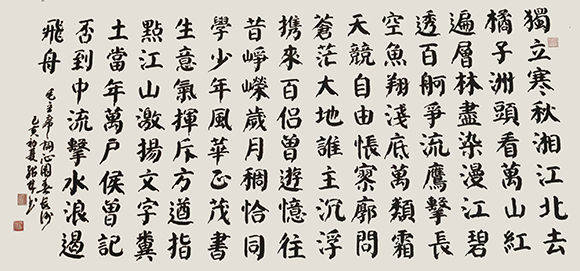 獨立寒秋湘江北去
橘子洲頭看萬山紅
遍層林盡染漫江碧
透百舸爭流鷹擊長
空魚翔淺底萬類霜
天競自由悵寥廓問
蒼茫大地誰主沉浮
携來百侶曾遊憶往
昔崢嶸歲月稠恰同
學少年風華正茂書
生意氣揮斥方遒指
點江山激揚文字糞
土當年萬戶侯曾記
否到中流擊水浪遏
飛舟
毛主席詞沁園春長沙
己亥初夏